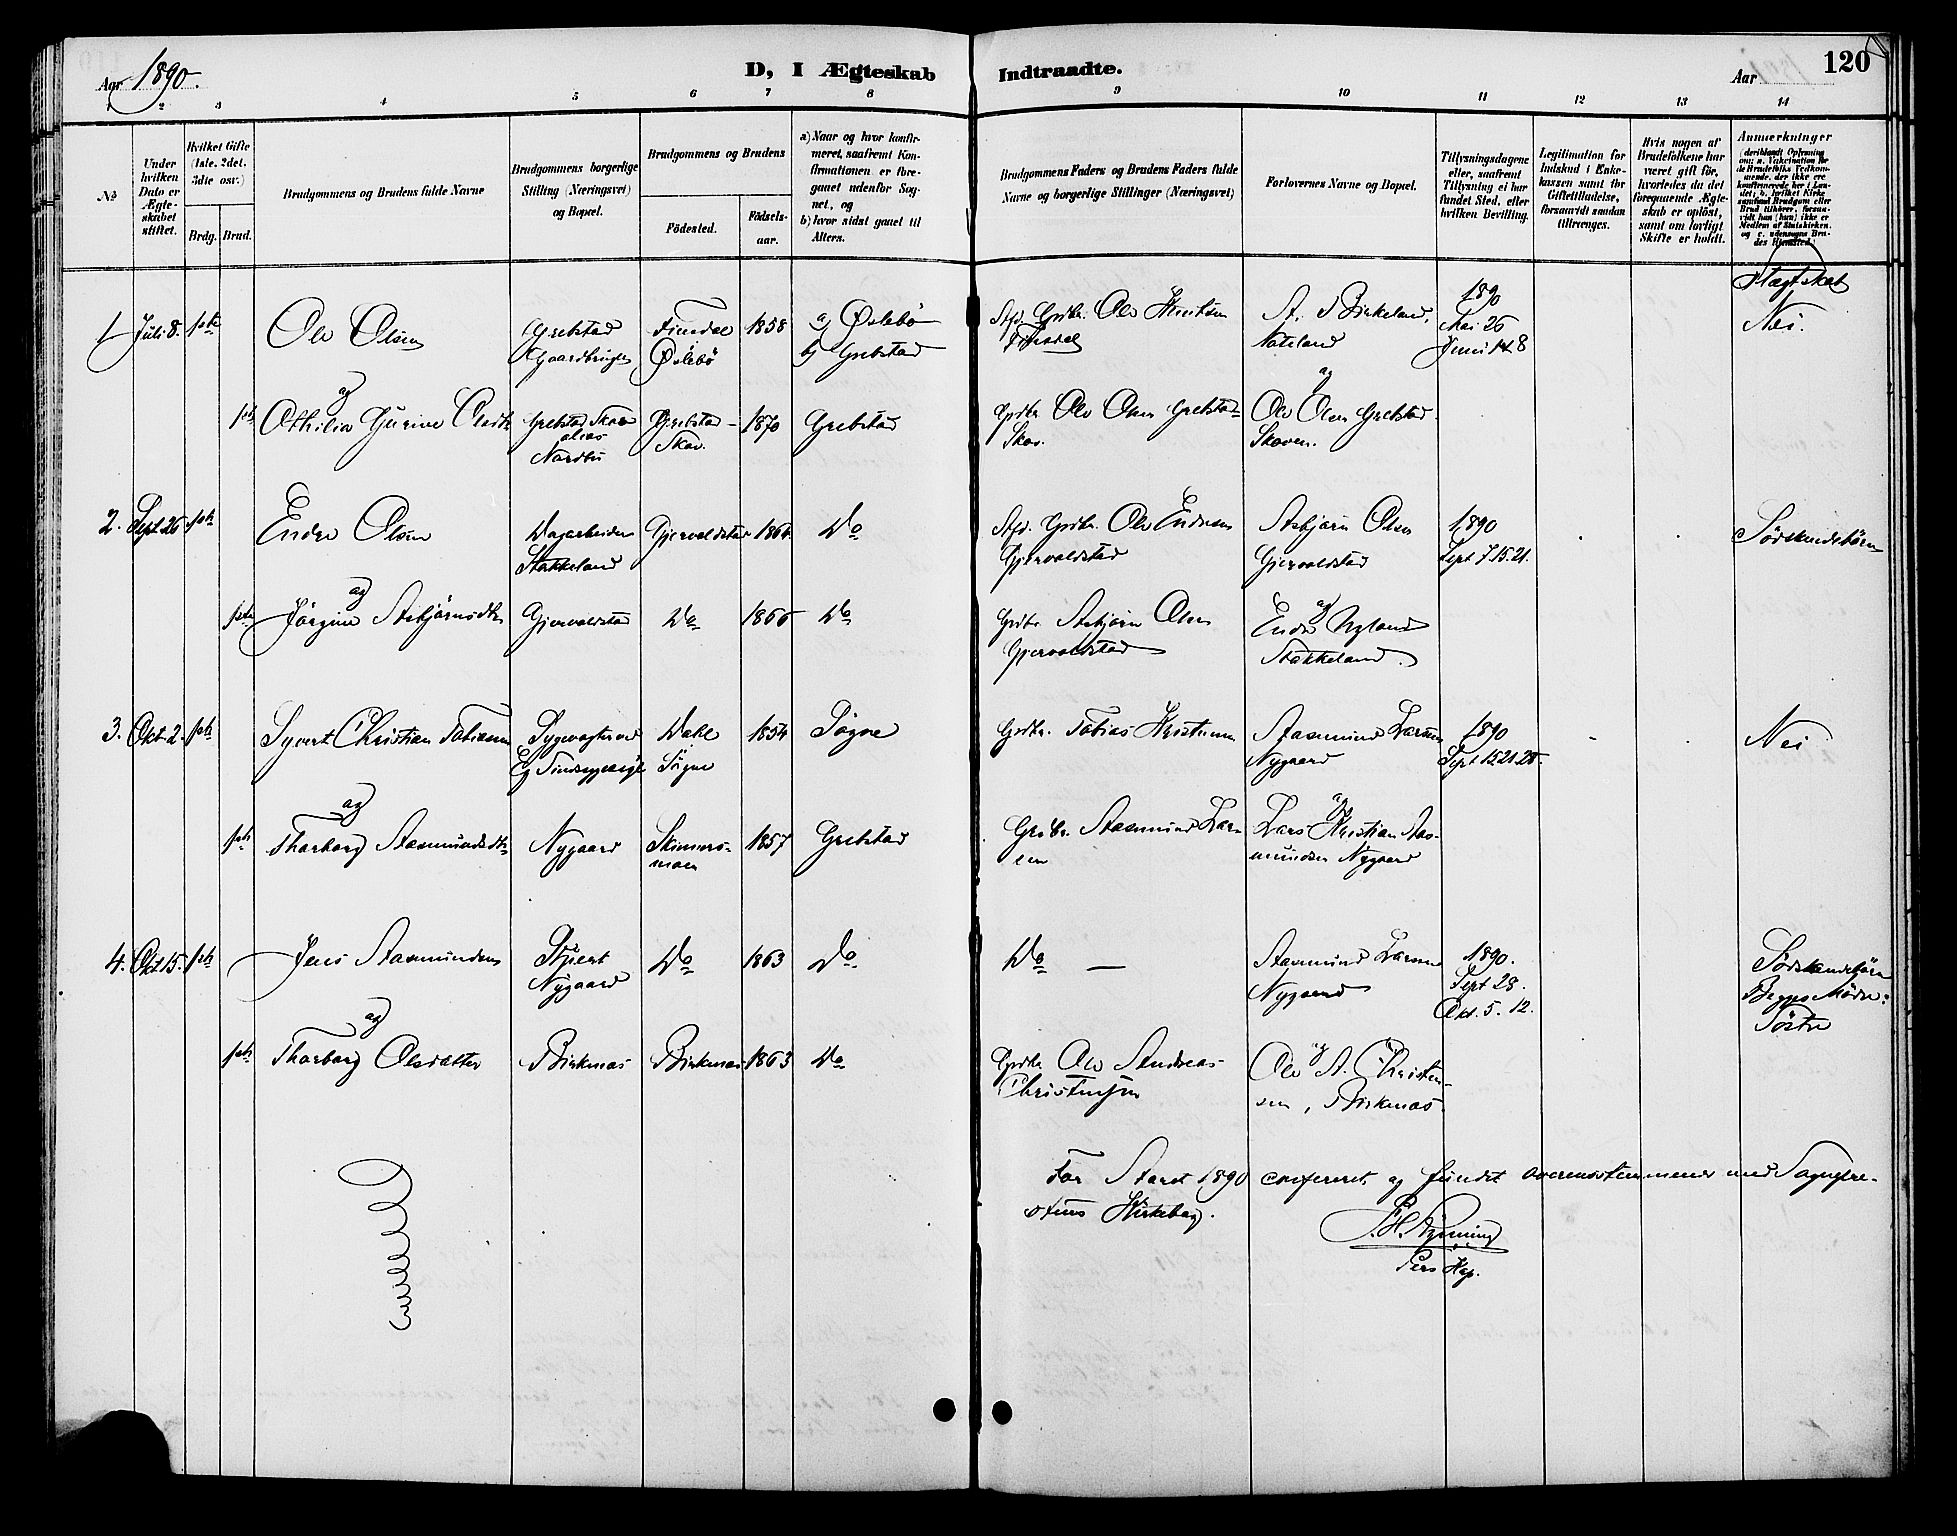 Aar 1890.
D, I Ægteskab Indtraadte.
Aar
120
1 2 3 4 5 6 7 8 9 10 11 12 13 14
No
Under hvilken Dato er Ægteskabet stiftet.
Hvilket Gifte (1ste, 2det, 3die osv.)
Brdg. Brud.
Brudgommens og Brudens fulde Navne
Brudgommens borgerlige Stilling (Næringsvei) og Bopæl.
Brudgommens og Brudens
Födested.
Födselsaar.
a) Naar og hvor konfirmeret, saafremt Konfirmationen er foregaaet udenfor Sognet, og
b) hvor sidst gaaet til Alters.
Brudgommens Faders og Brudens Faders fulde Navne og borgerlige Stillinger (Næringsvei)
Forlovernes Navne og Bopæl.
Tillysningsdagene eller, saafremt Tillysning ei har fundet Sted, eller hvilken Bevilling.
Legitimation for Indskud i Enkekassen samt for Giftetilladelse, forsaavidt saadan tiltrænges.
Hvis nogen af Brudefolkene har været gift för, hvorledes da det foregaaende Ægteskab er oplöst, samt om lovligt Skifte er holdt.
Anmærkninger
Slægtskab
1 Juli 8. 1ste Ole Olsen Grebstad Gaardbruger Finsdal Øslebö 1858 a) Øslebö b) Grebstad Afd. Grdbr. Ole Henriksen Finsdal A. Birkeland, Nateland 1890 Mai 26 Juni 1 & 8 Nei.
og
1ste Othilia Gurine Olsdtr Grebstad Skov alias Nordbö Grebstad-Skov. 1870 Grebstad Grdbr. Ole Olsen Grebstad-Skov. og Ole Olsen Grebstad Skoven.
2. Sept. 26 1ste Endre Olsen Dagarbeider Stakkeland Gjervoldstad 1866 Do Afd. Grdbr. Ole Endresen Gjervoldstad Asbjörn Olsen Gjervoldstad 1890 Sept 7. 15. 21. Södskendebörn
og
1ste Jörgine Asbjörnsdtr Gjervoldstad Do 1866 Do Grdbr. Asbjörn Olsen Gjervoldstad og Endre Nyland Stakkeland.
3. Okt. 2. 1ste Syvert Christian Tobiassen Sygevogter ved Eg Sindssygeasyl Dahl Sögne 1854 Sögne Grdbr. Tobias Kristensen Aasmund Larsen Nygaard 1890 Sept 15 21. 28. Nei
og
1ste Tharborg Aasmundsdtr Nygaard Skinnersmoen 1857 Grebstad Grdbr. Aasmund Larsen og Lars Kristian Aasmundsen Nygaard
4. Okt. 15. 1ste Jens Aasmundsen Nygaard Do 1863 Do. Do — Aasmund Larsen Nygaard 1890. Sept 28. Okt. 5. 12. Södskendebörn Begges Mödre: Söstre
og
1ste Tharborg Olsdatter Birkenes Birkenes 1863 Do Grdbr. Ole Andreas Christensen og Ole A. Christensen, Birkenes
For Aaret 1890 confereret og fundet overensstemmende med Sognepre-
stens Kirkebog.
Pers Kap.